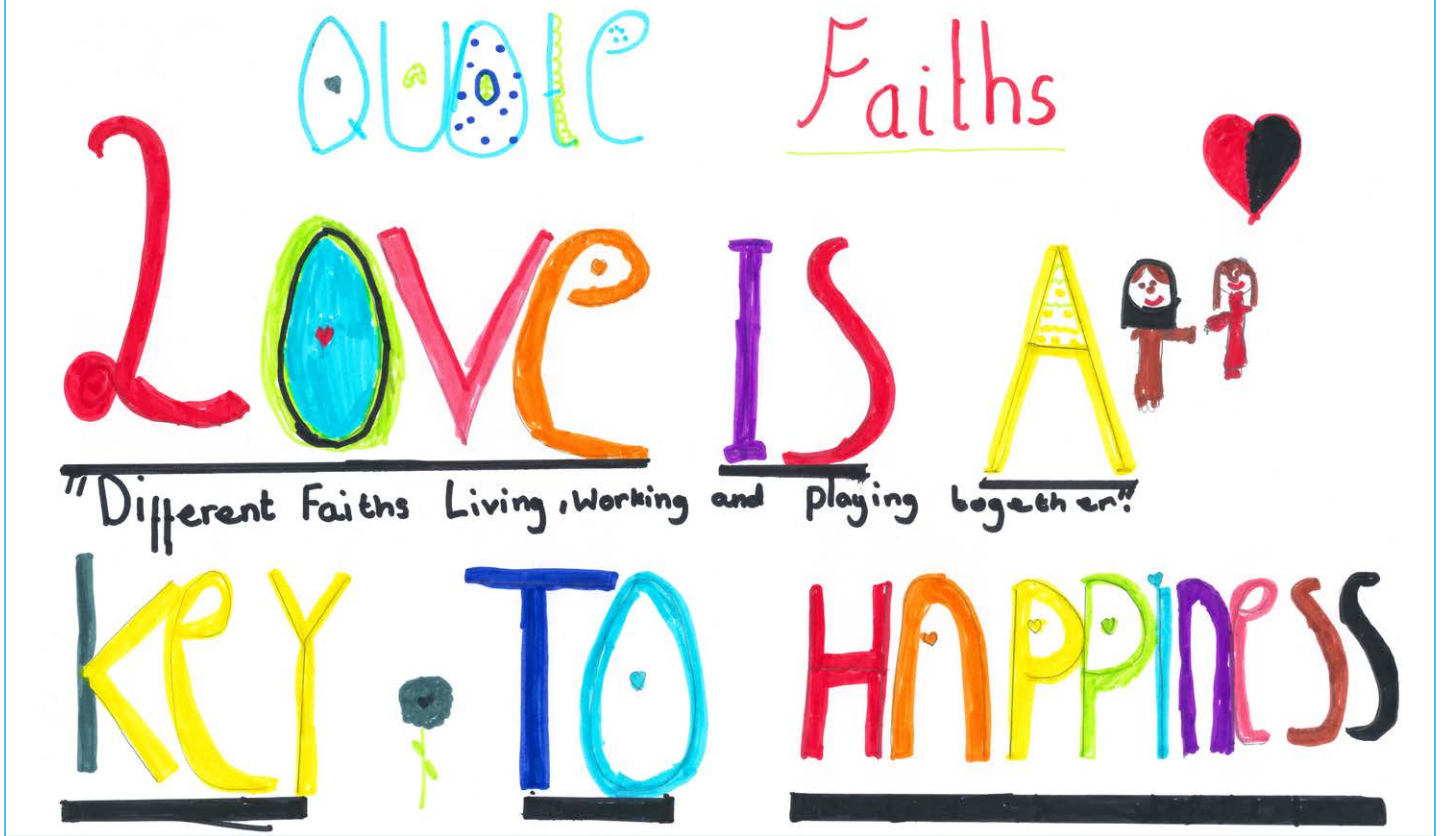 QUOte Faiths
LOVe IS A
"Different Faiths Living, Working and playing together."
KeY TO HAPPiNeSS